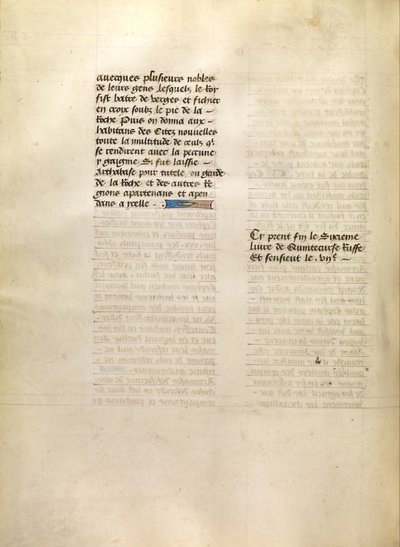 avecques plusieurs nobles
de leurs gens lesquelz le Roy
fist batre de verges et ficher
en croix soubz le pie de la
Roche Puis on donna aux
habitans des Citez nouvelles
toute la multitude de ceulx qui
se rendirent avec la pecune
y gaignie Si fut laissie
Arthabase pour tutele ou garde
de la Roche et des autres Re
gions apartenans et apen
dans a jcelle
Cy prent fin le Sixieme
livre de Quintecurse Ruffe
Et sensieut le vije